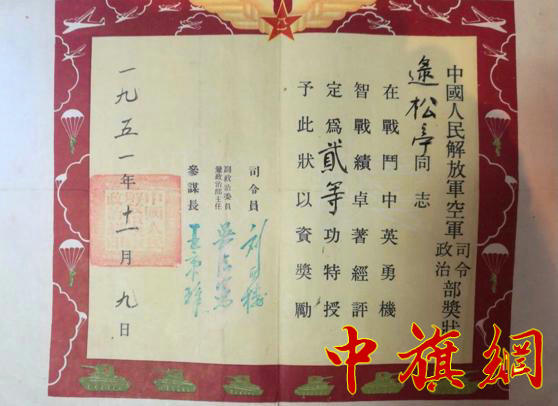 中國人民解放軍空軍司令政治部獎狀
逯松亭同志
在戰鬥中英勇機
智戰績卓著經評
定為貳等功特授
予此狀以資獎勵
司令員 刘亞樓
副政治委員
兼政治部主任 吳法憲
參謀長 王秉璋
一九五一年十一月九日
中旗網